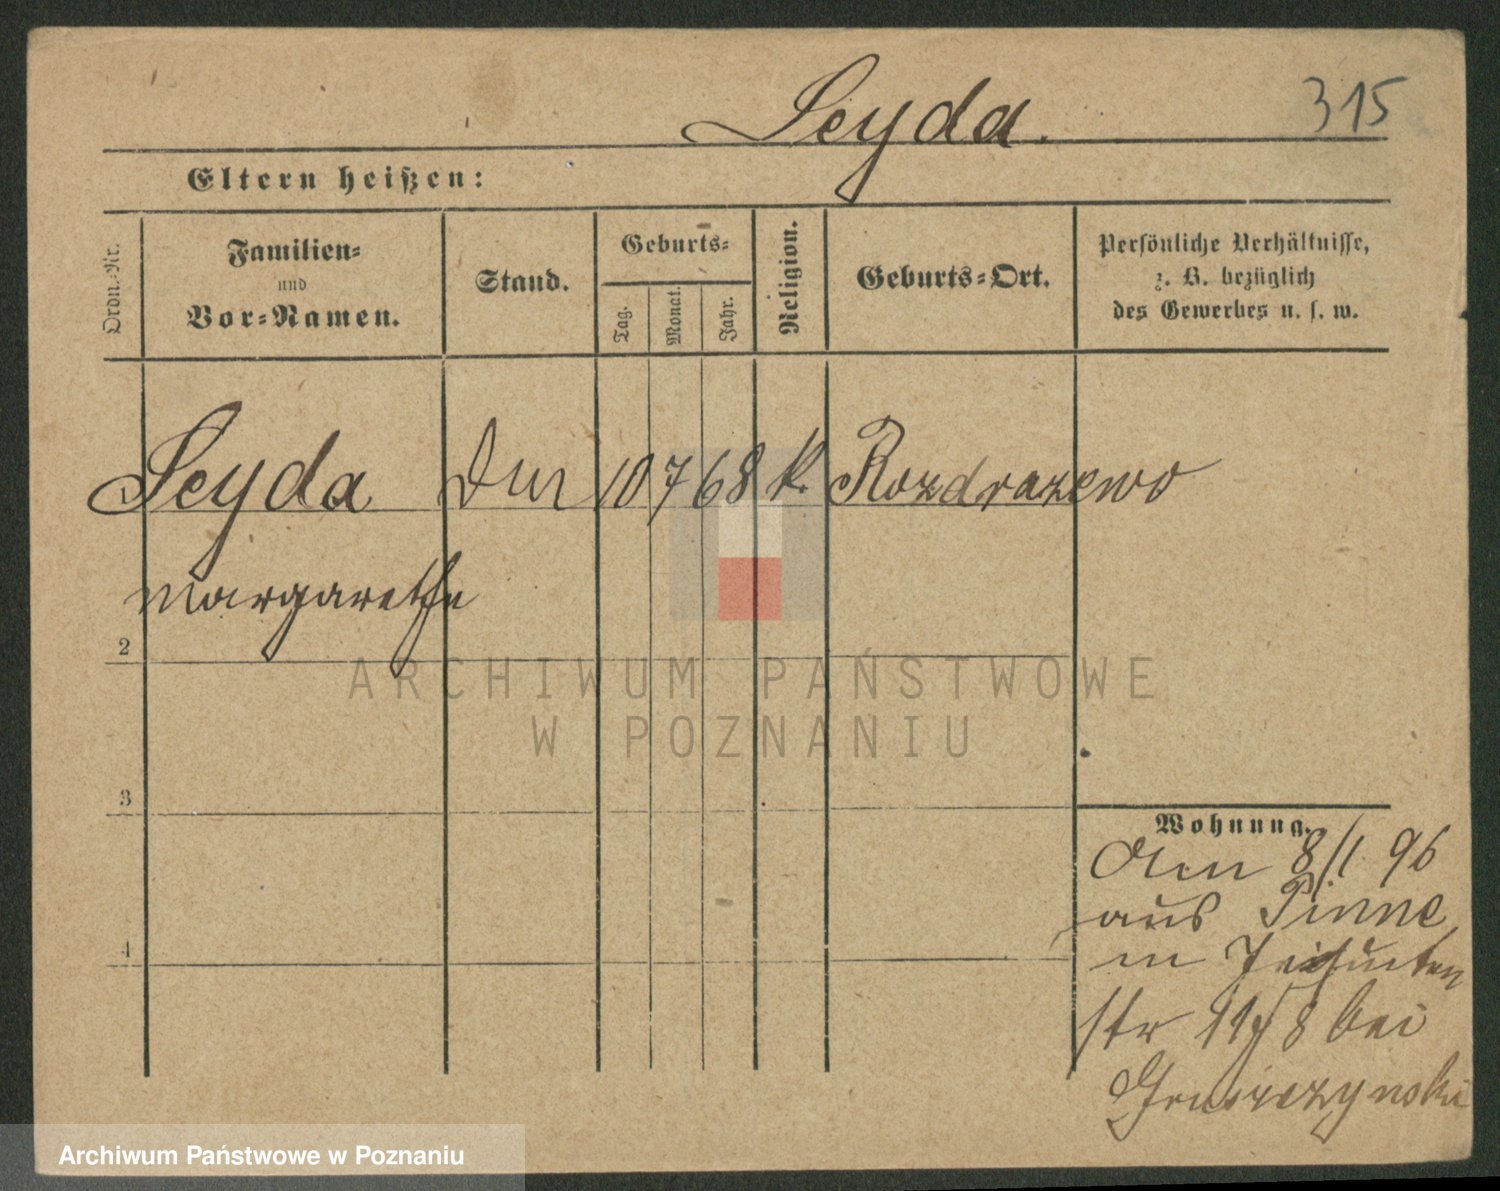 Seyda.
315
Eltern heißen:
Ordn.-Nr.
Familien=
und
Vor=Namen.
Stand.
Geburts=
Tag.
Monat.
Jahr.
Religion.
Geburts=Ort.
Persönliche Verhältnisse,
z. B. bezüglich
des Gewerbes u. s. w.
1 Seyda 10 7 68 k. Rozdrazewo
Margarethe
2
3
4
ARCHIWUM PAŃSTWOWE
W POZNANIU
Wohnung.
Am 8/1. 96
aus Pinne
in Jesuiten
str bei
Archiwum Państwowe w Poznaniu